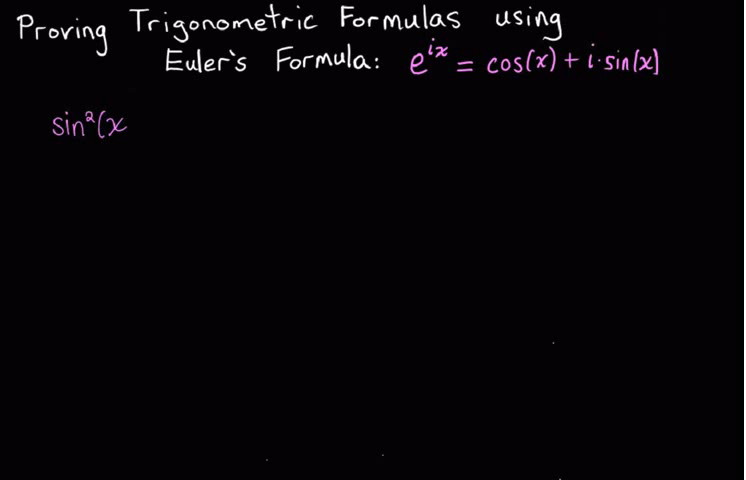 Proving Trigonometric Formulas using
Euler's Formula: e^{ix} = cos(x) + i·sin(x)
sin²(x